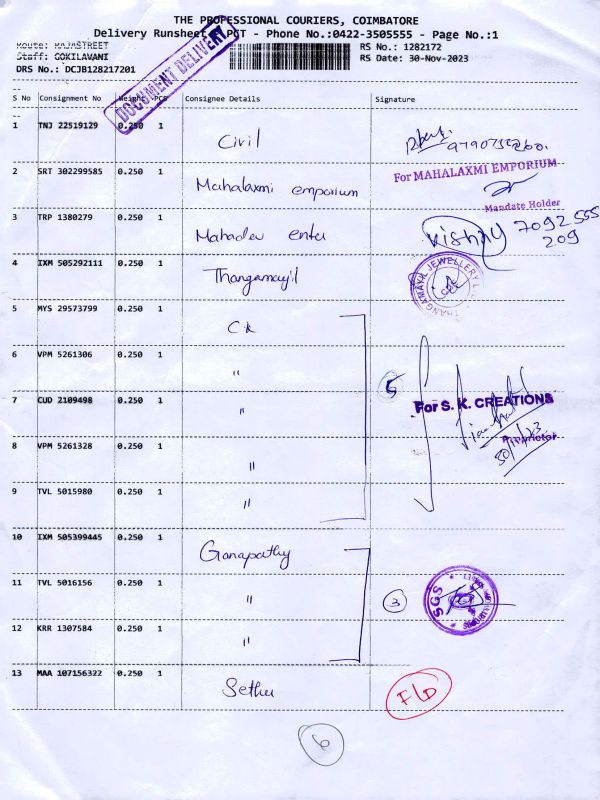 THE PROFESSIONAL COURIERS, COIMBATORE
Delivery Runsheet - PGT - Phone No.:0422-3505555 - Page No.:1
DOCUMENT DELIVERY
Route: RAJASTREET
RS No.: 1282172
Staff: GOKILAVANI
RS Date: 30-Nov-2023
DRS No.: DCJB128217201
S No Consignment No Weight PCS Consignee Details Signature
1 TNJ 22519129 0.250 1 Civil
2 SRT 302299585 0.250 1 Mahalaxmi emporium For MAHALAXMI EMPORIUM
Mandate Holder
3 TRP 1380279 0.250 1 Mahadev enter Vishnu 7092555
209
4 IXM 505292111 0.250 1 Thangamayil THANGAMAYIL JEWELLERY
5 MYS 29573799 0.250 1 CK
6 VPM 5261306 0.250 1 "
5
7 CUD 2109498 0.250 1 " For S. K. CREATIONS
Proprietor
30/11/23
8 VPM 5261328 0.250 1 "
9 TVL 5015980 0.250 1 "
10 IXM 505399445 0.250 1 Ganapathy
11 TVL 5016156 0.250 1 " 3 SGS
12 KRR 1307584 0.250 1 "
13 MAA 107156322 0.250 1 Sethu F/D
6